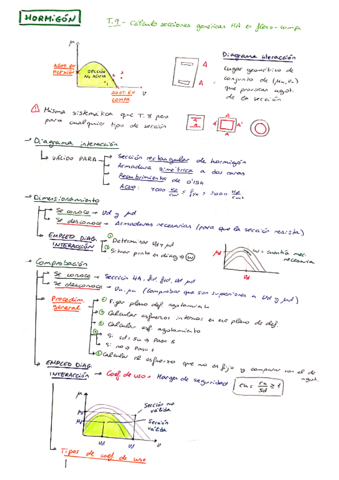 HORMIGÓN
T.9 - Cálculo secciones genéricas HA en flexo-comp
μ
AGOT. EN FLEXIÓN
SECCIÓN NO AGOTA
ν
AGOT. EN COMPR
A
A
Diagrama iteracción
Lugar geométrico de
conjunto de (μu, νu)
que provocan agot.
de la sección
Misma sistemática que T.8 pero
para cualquier tipo de sección
A
A
A
Diagrama interacción
válido PARA
Sección rectangular de hormigón
Armadura simétrica a dos caras
Recubrimiento de 0'15h
Acero:
Dimensionamiento
Se conoce → νd y μd
Se desconoce → Armaduras necesarias (para que la sección resista)
EMPLEO DIAG. INTERACCIÓN
① Determinar νd y μd
② Situar pto en diag → ω
μd
νd
ω = cuantía mec. necesaria
Comprobación
Se conoce → Sección HA,
Se desconoce → νu, μu (comprobar que son superiores a νd y μd)
Procedim. general
① Fijar plano def. agotamiento
② Calcular esfuerzos internos en ese plano de def.
③ Calcular esf agotamiento
④ Si Sd = Su → Paso 5
Si no → Paso 1
⑤ Calcular el esfuerzo que no es fijo y comparar con el de agot.
EMPLEO DIAG. INTERACCIÓN → Coef de uso = Margen de seguridad
≥ 1
μ
Sección no válida
Sección válida
νd
νd
ν
Tipos de coef de uso